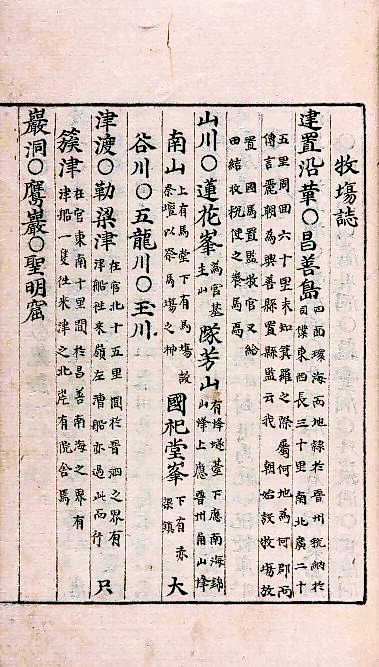 牧塲誌
建置沿革○昌善島 四面環海而地隸於晉州稅納於
僕東西長三十里南北廣二十
五里周回六十里未知箕羅之際屬何地爲何郡而
傳言麗朝爲興善縣置縣監云我 朝始設牧塲放
置 國馬置監牧官又給
田結收稅使之養馬焉
山川○蓮花峯 爲官基
主山 隊芳山 有烽燧基下應南海錦
山烽上應晉州角山烽
南山 上有馬堂下有馬塲設
祭壇以祭馬塲之神 國祀堂峯 下有赤
梁鎮 大
谷川○五龍川○玉川
津渡○勒梁津 在官北十五里間於晉泗之界有
津船徃來嶺左漕船亦過此而行 只
簇津 在官東南十里間於昌善南海之界有
津船一隻徃來津之北岸有院舍焉
巖洞○鷹巖○聖明窟